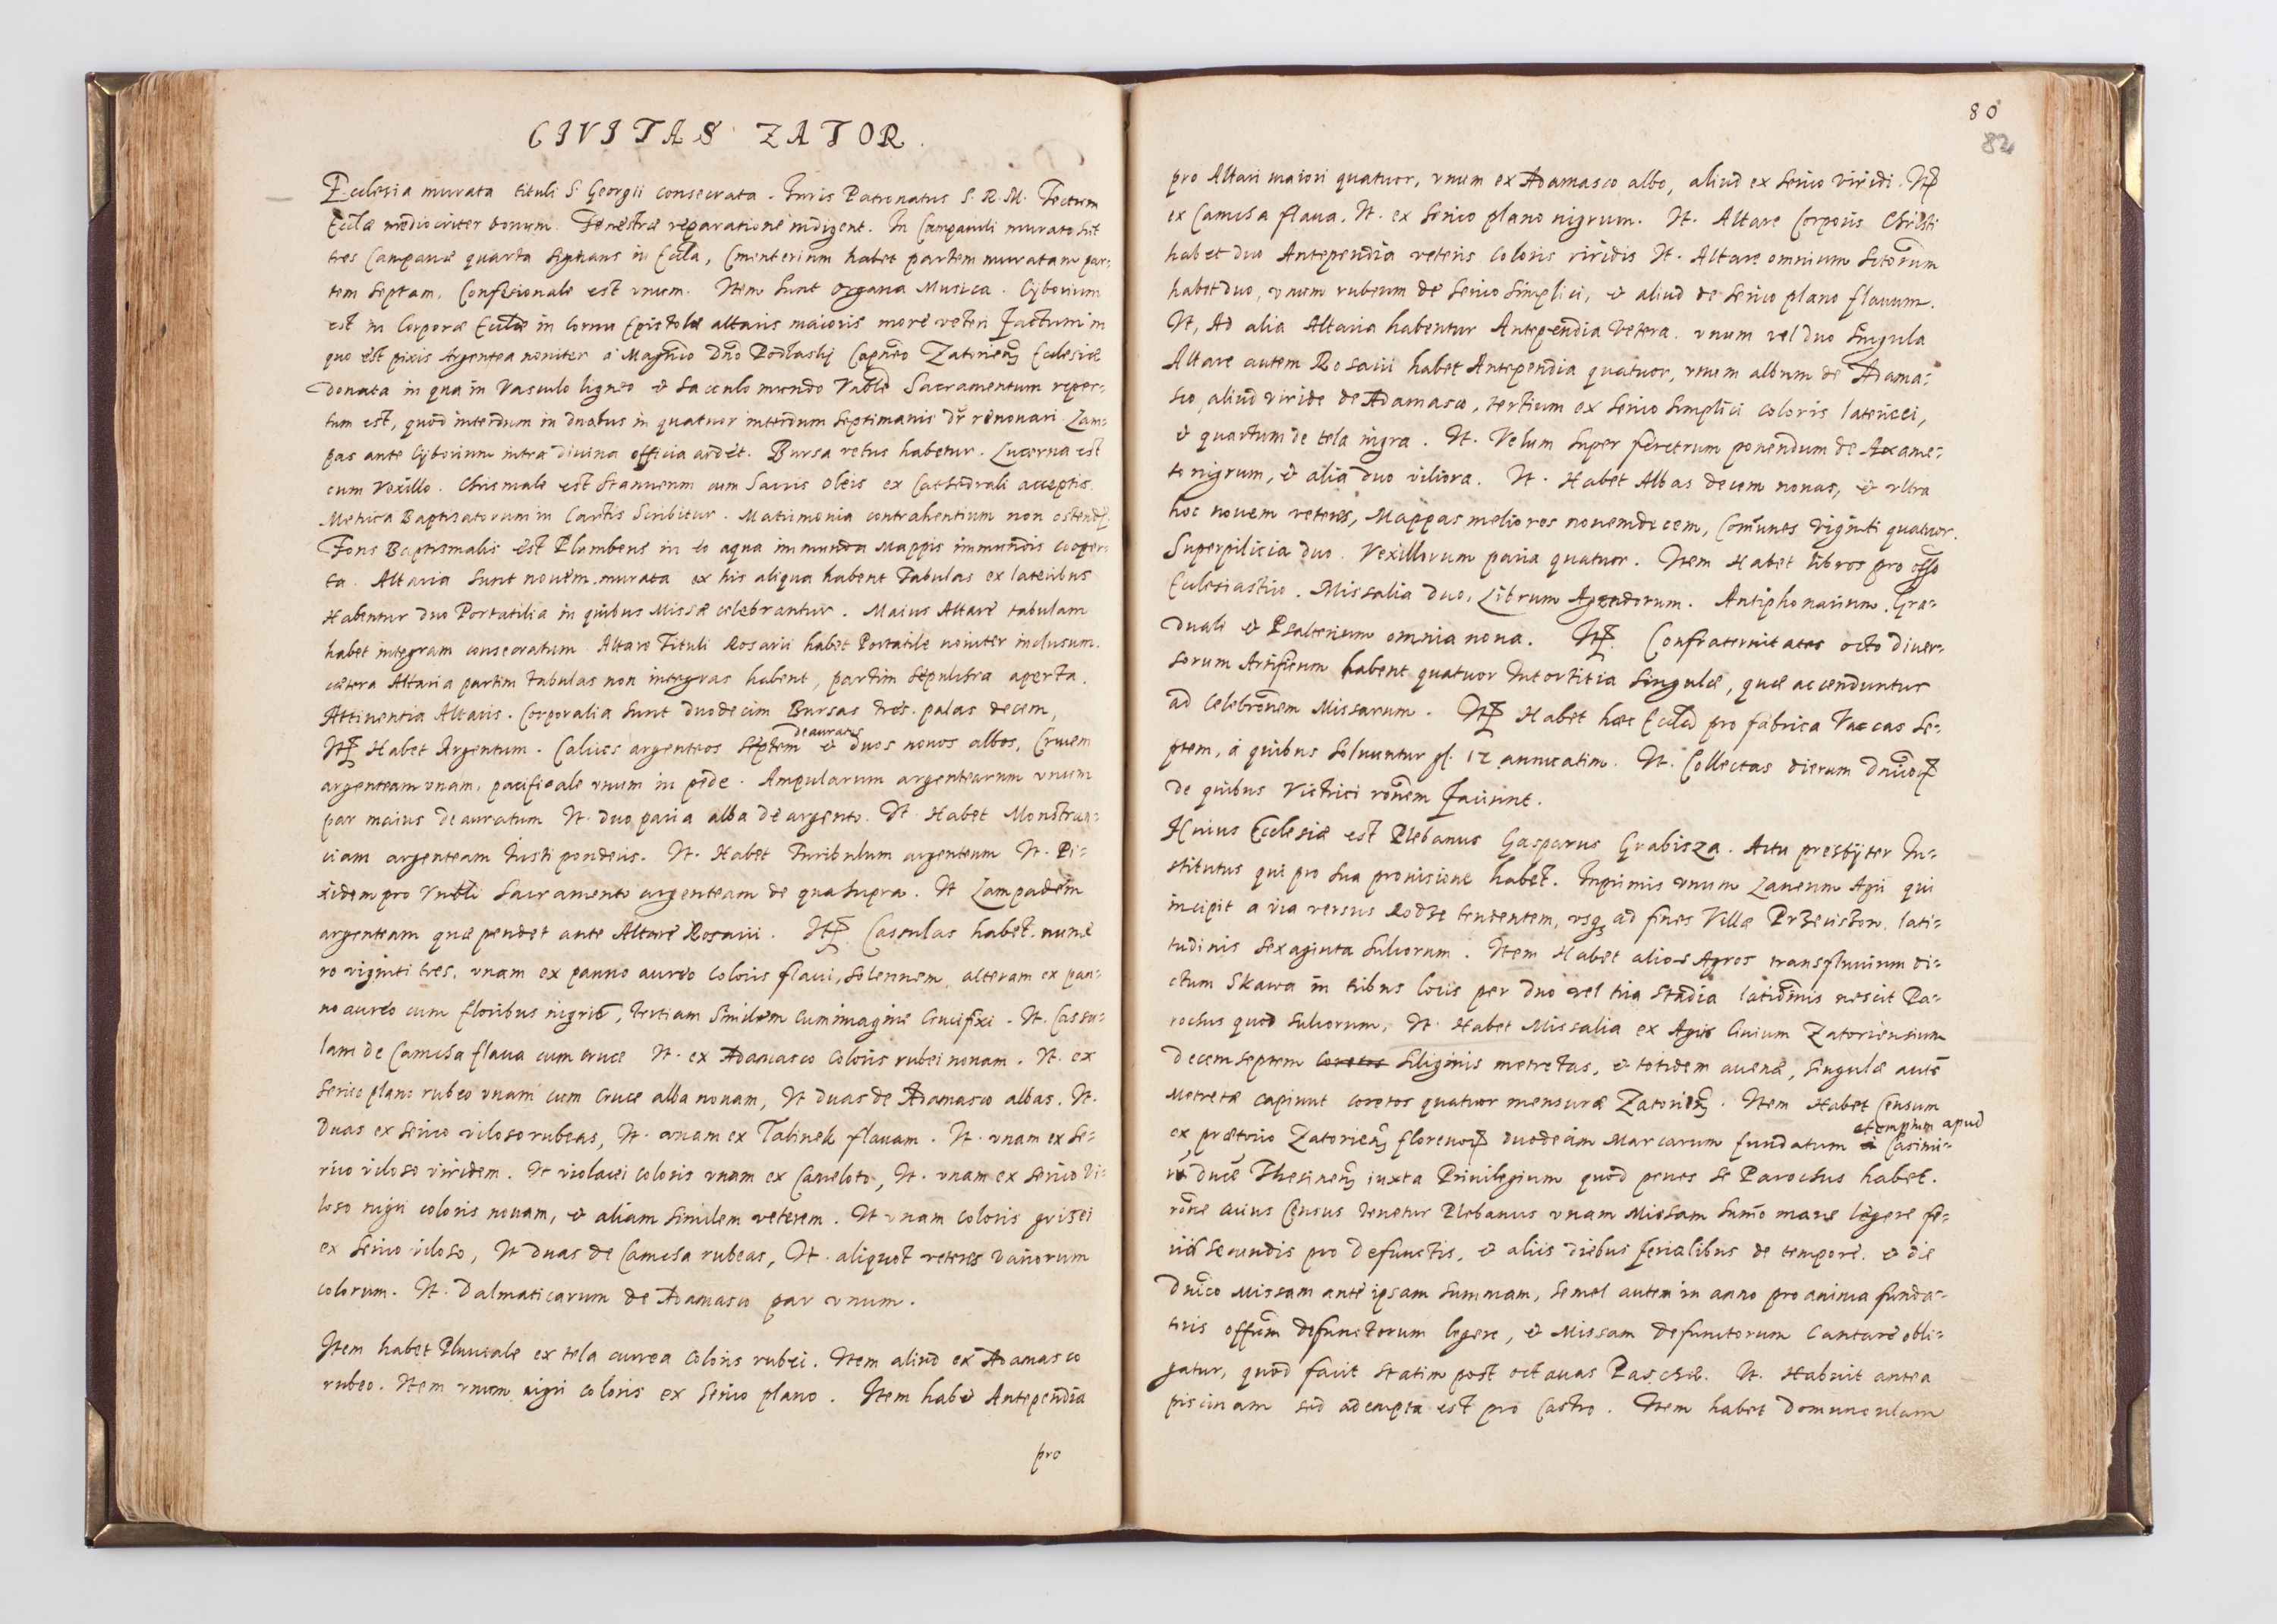 CIVITAS ZATOR.
Ecclesia murata tituli S. Georgii consecrata. Iuris Patronatus S. R. M. Tectum
Eccłæ mediocriter bonum. Fenestræ reparatione indigent. In Campanili murato sūt
tres Campanæ quarta signans in Eccła, Cmenterium habet partem muratam par-
tem septam. Confesionale est vnum. Item sunt Organa Musica. Cyborium
est in Corpore Eccłæ in Cornu Epistolæ altaris maioris more veteri factum in
quo est pixis Argentea noniter a Magnīco Dnō Podłaskj Capneo Zatorien̄ Ecclesiæ
donata in qua in Vasculo ligneo et sacculo mundo Vnāble Sacramentum reper-
tum est, quod interdum in duabus in quatuor interdum septimanis dr̄ renouari. Lam-
pas ante Cyborium intra diuina officia ardet. Bursa vetus habetur. Lucerna est
cum Vexillo. Chrismale est stanneum cum Sacris Oleis ex Cathedrali acceptis.
Metrica Baptisatorum in Cartis Scribitur. Matrimonia contrahentium non ostendr̄.
Fons Baptismalis est Plumbeus in eo aqua immunda Mappis immundis cooper-
ta. Altaria sunt nouem murata ex his aliqua habent Tabulas ex lateribus
Habentur duo Portatilia in quibus Missæ celebrantur. Maius Altare tabulam
habet integram consecratam Altare Tituli Rosarii habet Portatile noviter inclusum.
cætera Altaria partim tabulas non integras habent, partim sepulchra aperta.
Attinentia Altaris. Corporalia sunt duodecim Bursas tres. palas decem,
Itē Habet Argentum. Calices argenteos septem deauratis et duos nouos albos, Crucem
argenteam vnam, pacificale vnum in pede. Ampularum argentearum vnum
par maius deauratum It. duo paria alba de argento. It. Habet Monstran-
ciam argenteam Iusti ponderis. It. Habet Turibulum argenteum It. Pi-
xidem pro Vnbli Sacramento argenteam de qua supra. It. Lampadem
argenteam quæ pendet ante Altare Rosarii. Itē. Casulas habet nume
ro viginti tres. vnam ex panno aureo coloris flaui, solennem, alteram ex pan-
no aureo cum floribus nigris, tertiam similem cum imagine Crucifixi. It. Cassu-
lam de Camcha flaua cum cruce It. ex Adamasco coloris rubei nouam. It. ex
serico plano rubeo vnam cum cruce alba nouam, It. duas de Adamasco albas. It.
Duas ex serico viloso rubeas, It. vnam ex Talinek flauam. It. vnam ex se-
rico viloso viridem. It. violacei coloris vnam ex Cameloto, It. vnam ex serico Vi-
loso nigri coloris nouam, et aliam similem veterem. It. vnam coloris grisei
ex serico viloso, It. duas de Camcha rubeas, It. aliquot veteres variorum
colorum. It. Dalmaticarum de Adamasco par vnum.
Item habet Pluuiale ex tela aurea coloris rubei. Item aliud ex Adamasco
rubeo. Item vnum nigri coloris ex serico plano. Item habet Antependia
pro
80
82
pro Altari maiori quatuor, vnum ex Adamasco albo, aliud ex serico viridi. Itē
ex Camcha flaua. It. ex serico plano nigrum. It. Altare Corporis Christi
habet duo Antependia veteris coloris viridis It. Altare omnium Sctorum
habet duo, vnum rubeum de serico simplici, et aliud de serico plano flauum.
It. Ad alia Altaria habentur Antependia Vetera. vnum vel duo singula
Altare autem Rosarii habet Antependia quatuor, vnum album de Adama-
sco, aliud viride de Adamasco, tertium ex serico simplici coloris latericei,
et quartum de tela nigra. It. Velum super feretrum ponendum de Axame-
to nigrum, et alia duo viliora. It. Habet Albas decem nonas, et vltra
hoc nouem veteres, Mappas meliores nouemdecem, Com̄unes Viginti quatuor.
Superpilicia duo. Vexillorum paria quatuor. Item Habet libros pro offo
Ecclesiastico. Missalia duo, Librum Agendorum. Antiphonarium. Gra-
duali et Psalterium omnia noua. Itē. Confraternitates octo diuer-
sorum Artificum habent quatuor Intortitia singulæ, quæ accenduntur
ad Celebrōnem Missarum. Itē Habet hæc Eccła pro fabrica Vaccas se-
ptem, a quibus soluuntur fl. 12 annuatim. It. Collectas dierum Dnīcorum
de quibus Victrici rōnem faciunt.
Huius Ecclesiæ est Plebanus Gasparus Grabisza. Actu presbyter In-
stitutus qui pro sua prouisione habet. Inprimis vnum Laneum Agri qui
incipit a via versus Rodze tendentem, vsq3 ad fines Villæ Przeciszow. lati-
tudinis sexaginta sulcorum. Item Habet alios Agros trans fluuium di-
ctum Skawa in tribus locis per duo vel tria stadia latidinis nescit Pa-
rochus quod sulcorum, It. Habet Missalia ex Agris Ciuium Zatoriensium
Decem septem coretos siliginis metretas, et totidem auenæ, singulæ autē
Metretæ capiunt coretos quatuor mensuræ Zatorien̄. Item Habet Censum
ex prætorio Zatorien̄ florenorum duodecim Marcarum fundatum et emptum apud Casimi-
ro duce Theschinen̄ iuxta Priuilegium quod penes se Parochus habet.
rōne cuius Census tenetur Plebanus vnam Missam sum̄o mane legere fe-
riis secundis pro defunctis, et aliis diebus ferialibus de tempore. et die
Dnīco Missam ante ipsam summam, semel autem in anno pro anima funda-
toris offūm defunctorum legere, et Missam defunctorum Cantare obli-
gatur, quod facit statim post octauas Paschæ. It. Habuit antea
piscinam sed adempta est pro Castro. Item habet Domunculam